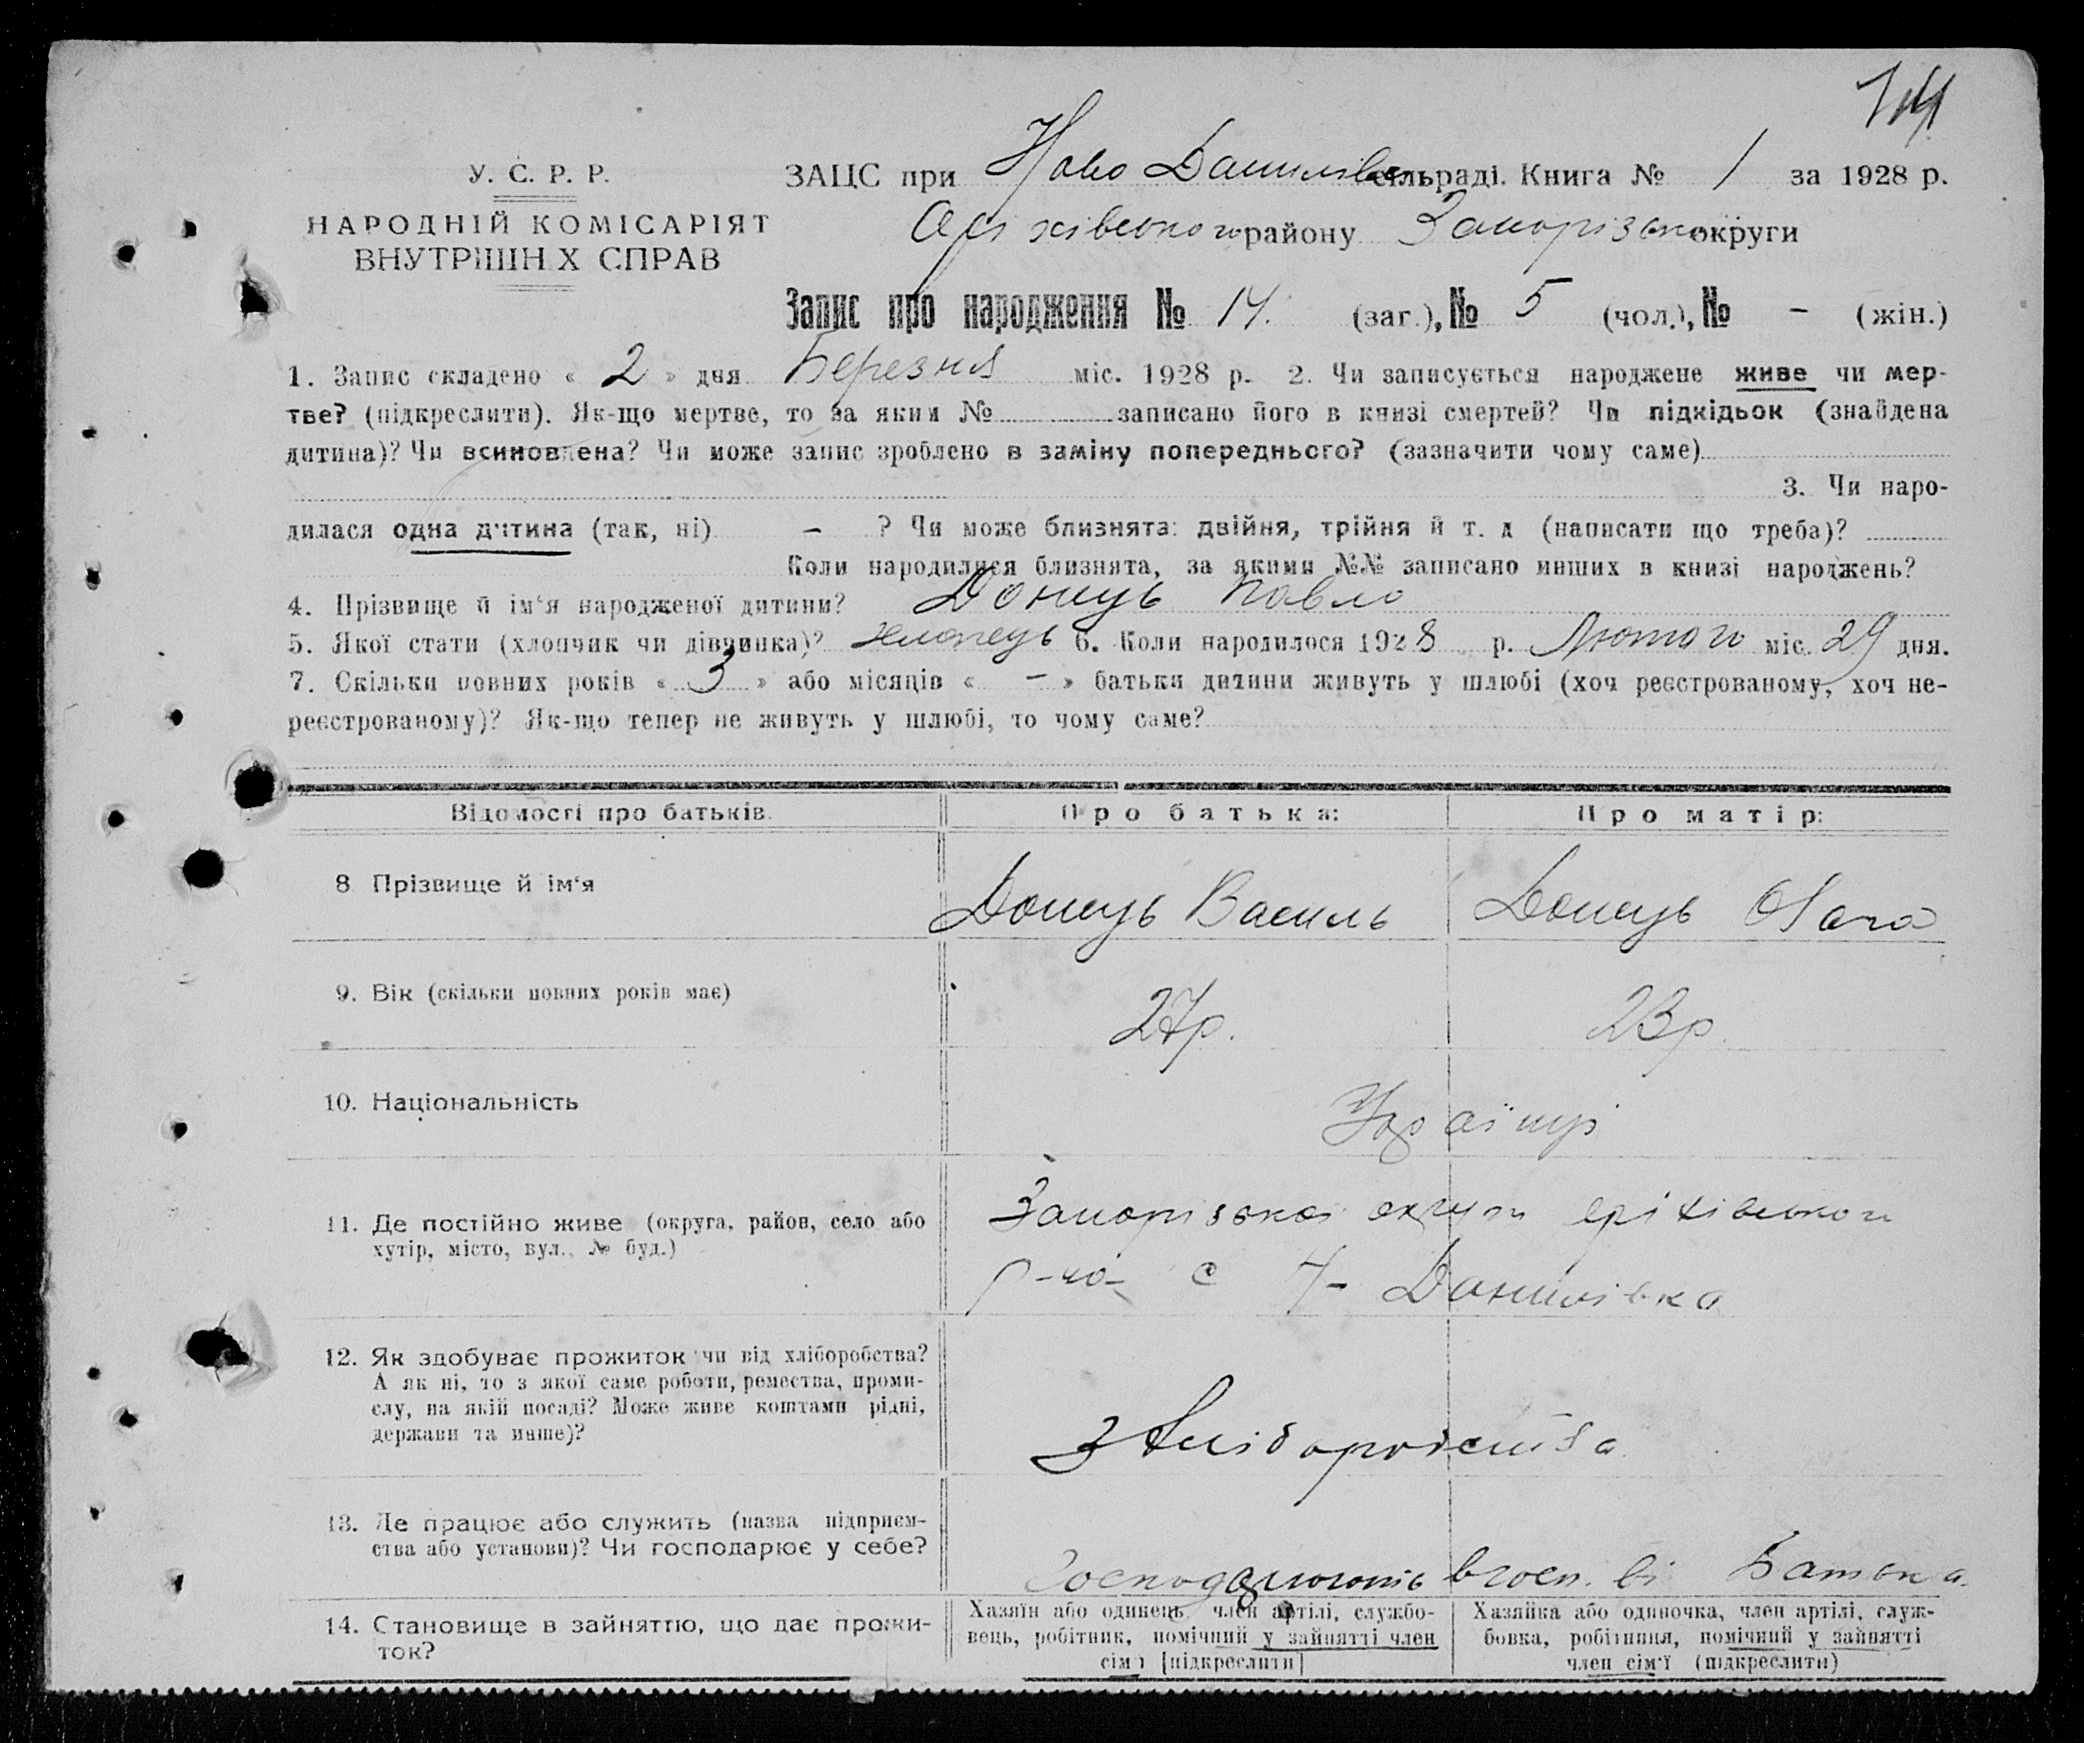 14
У. С. Р. Р.
НАРОДНІЙ КОМІСАРІЯТ
ВНУТРІШНІХ СПРАВ
ЗАЦС при Ново Данилівс сільраді. Книга № 1 за 1928 р.
Оріхівського району Запорізько округи
Запис про народження № 14. (заг.), № 5 (чол.), № - (жін.)
1. Запис складено « 2 » дня Березня міс. 1928 р. 2. Чи записується народжене живе чи мер-
тве? (підкреслити). Як-що мертве, то за яким № записано його в книзі смертей? Чи підкідьок (знайдена
дитина)? Чи всиновлена? Чи може запис зроблено в заміну попереднього? (зазначити чому саме)
3. Чи наро-
дилася одна дитина (так, ні) - ? Чи може близнята: двійня, трійня й т. д (написати що треба)?
Коли народилися близнята, за якими №№ записано инших в книзі народжень?
4. Прізвище й ім‘я народженої дитини? Донець Павло
5. Якої стати (хлопчик чи дівчинка)? хлопець 6. Коли народилося 1928 р. Лютого міс. 29 дня.
7. Скільки повних років « 3 » або місяців « - » батьки дитини живуть у шлюбі (хоч реєстрованому, хоч не-
реєстрованому)? Як-що тепер не живуть у шлюбі, то чому саме?
Відомості про батьків. Про батька: Про матір:
8 Прізвище й ім‘я Донець Василь Донець
9. Вік (скільки повних років має) 27р. 23р.
10. Національність Українці
11. Де постійно живе (округа, район, село або
хутір, місто, вул., № буд.)
Запорізької округи Оріхівського
р-на с Н- Данилівка
12. Як здобуває прожиток чи від хліборобства?
А як ні, то з якої саме роботи, ремества, проми-
слу, на якій посаді? Може живе коштами рідні,
держави та инше)?
З Хліборобства
13. Де працює або служить (назва підприєм-
ства або установи)? Чи господарює у себе?
Господарюють в госп. ві Батька.
14. Становище в зайняттю, що дає прожи-
ток?
Хазяїн або одинець, член артілі, службо-
вець, робітник, помічний у зайнятті член
сім‘ї [підкреслити]
Хазяйка або одиночка, член артілі, служ-
бовка, робітниця, помічний у зайнятті
член сім‘ї (підкреслити)